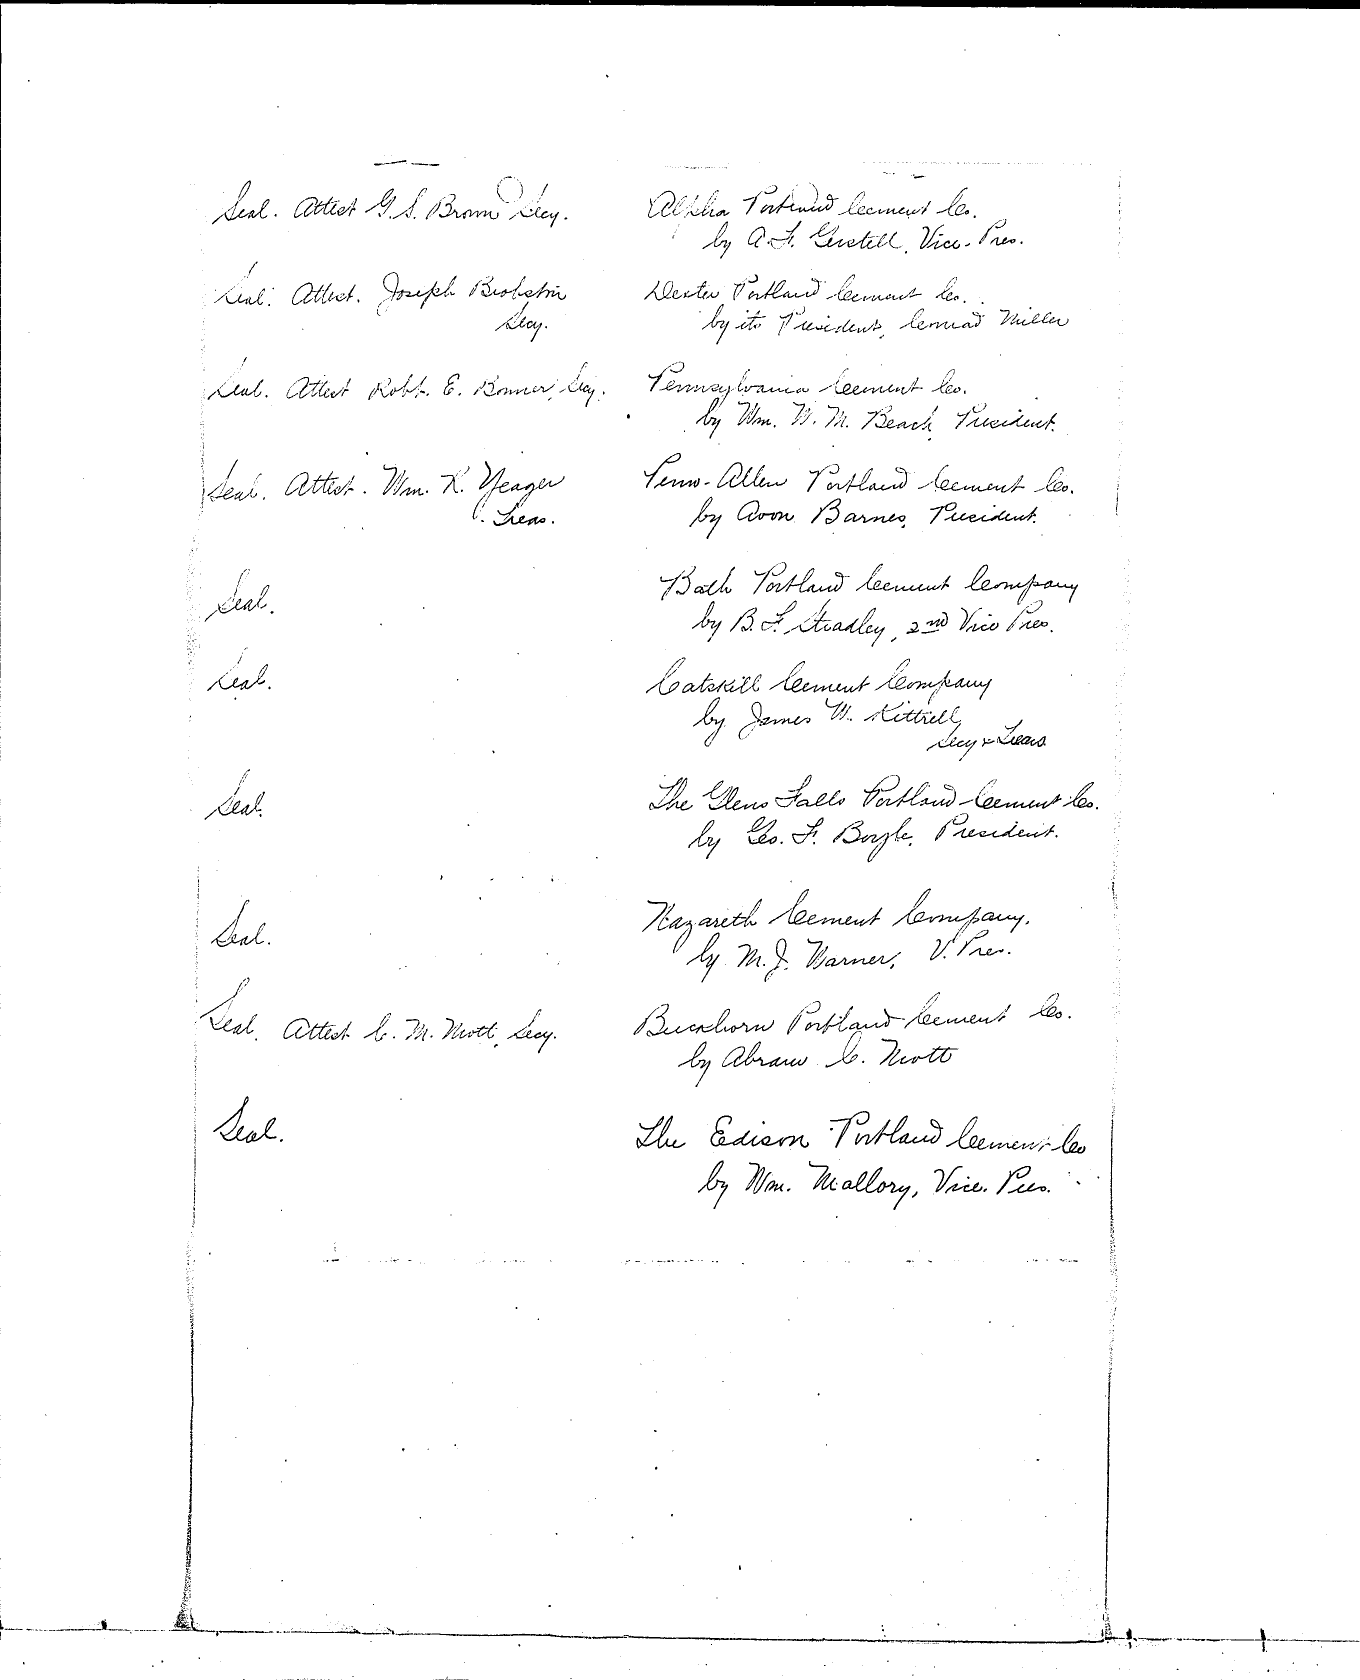 Seal. Attest G. S. Brown Secy. Alpha Portland Cement Co.
by A. F. Gerstell, Vice-Pres.
Seal. Attest. Joseph Brobston Dexter Portland Cement Co.
Secy. by its President, Conrad Miller
Seal. Attest Robt. E. Bonner, Secy. Pennsylvania Cement Co.
by Wm. W. M. Beach, President.
Seal. Attest. Wm. R. Yeager Penn-Allen Portland Cement Co.
Treas. by Avon Barnes, President.
Seal. Bath Portland Cement Company
by B. F. Stradley, 2nd Vice Pres.
Seal. Catskill Cement Company
by James W. Kittrell,
Secy & Treas
Seal. The Glens Falls Portland Cement Co.
by Geo. F. Boyle, President.
Seal. Nazareth Cement Company.
by M. J. Warner, V. Pres.
Seal. Attest C. M. Mott, Secy. Buckhorn Portland Cement Co.
by Abram C. Mott
Seal. The Edison Portland Cement Co
by Wm. Mallory, Vice. Pres.